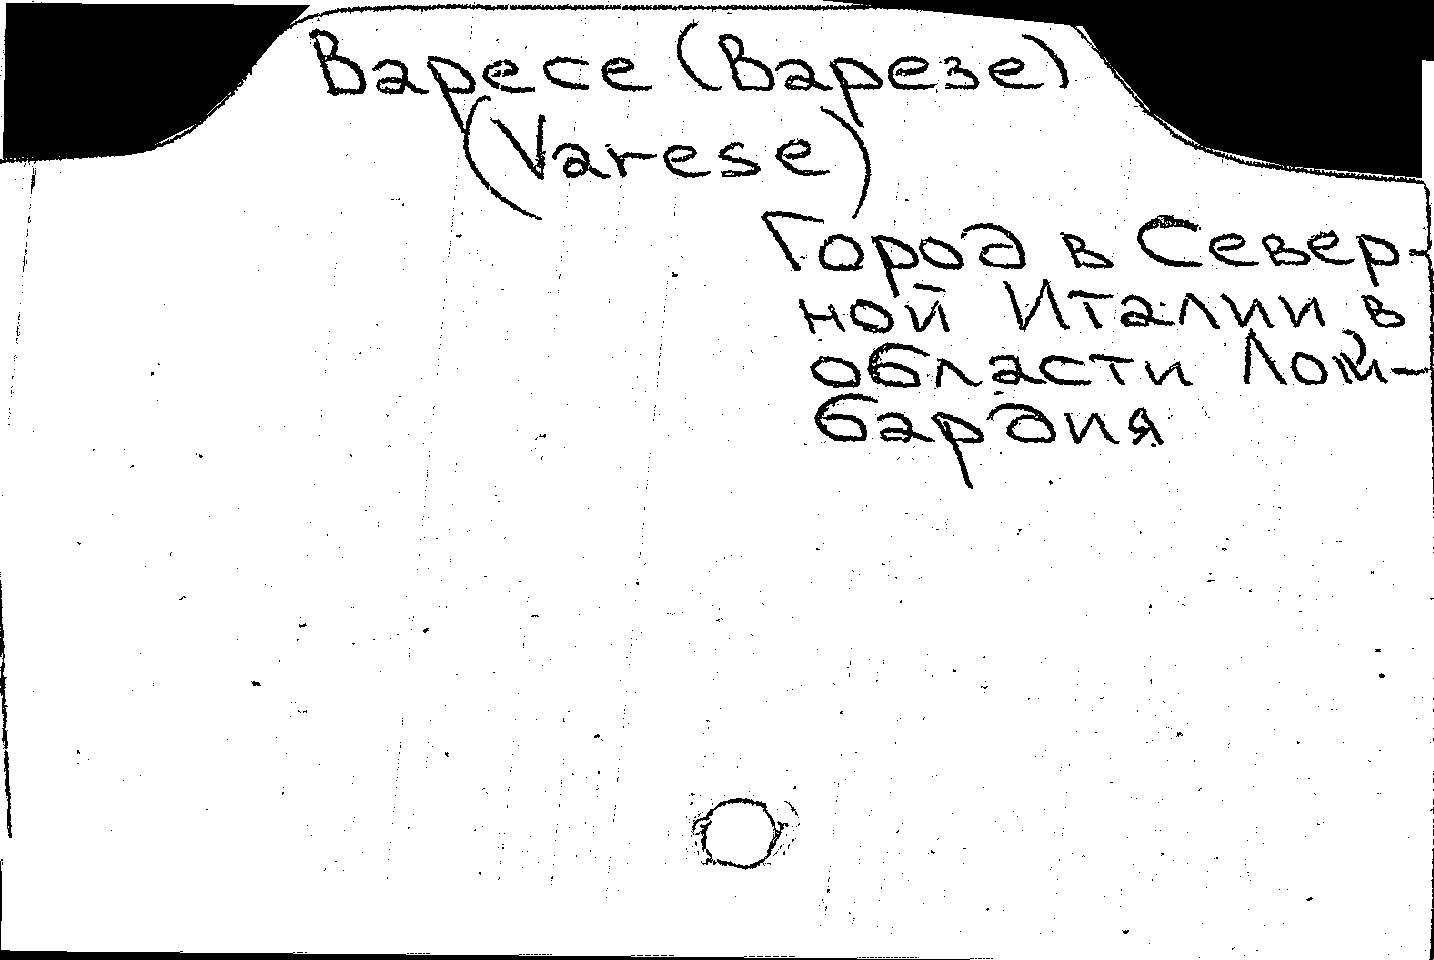 Варесе (Варезе)
(Varese)
Город в Север-
ной Италии в
области Лом-
бардия